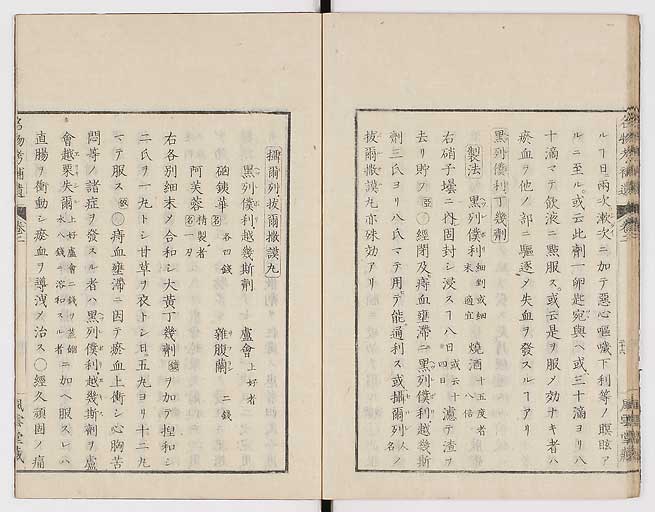 ルヿ日ニ兩次漱次ニ加テ惡心嘔噦下利等ノ瞑眩ア
ルニ至ル或云此劑一卵匙宛與ヘ或三十滴ヨリ八
十滴マテ飲液ニ㸃服ス或云是ヲ服ノ効ナキ者ハ
瘀血ヲ他ノ部ニ驅逐メ失血ヲ發スルヿアリ
黑列僕利丁幾劑
製法 黑列僕利 細剉或細末 適宜 燒酒 十五度者 八倍
右硝子壜ニ内固封シ浸スヿ八日 或云十四日 濾テ渣ヲ
去リ貯フ ○經閉及痔血壅滯ニ黑列僕利越幾斯
劑三氏ヨリ八氏マテ用テ能通利ス或攝爾列 人名 ノ
拔爾撒謨丸亦殊効アリ
名物考補遺 卷三
風雲堂藏
攝爾列拔爾撒謨丸
黑列僕利越幾斯劑 蘆會 上好者
硇銕華 各四錢 雜腹蘭 二錢
阿芙蓉 精製者 一刃
右各別細末メ合和シ大黃丁幾劑ヲ加テ揑和シ
二氏ヲ一丸トシ甘草ヲ衣トシ日ニ五丸ヨリ十二丸
マテ服ス ○痔血壅滯ニ因テ瘀血上衝シ心胸苦
悶等ノ諸症ヲ發スル者ハ黑列僕利越幾斯劑ヲ蘆
會越栗失爾 上好蘆會二錢 水八錢ニ溶和スル者 ニ加ヘ服スレハ
直腸ヲ衝動シ瘀血ヲ導洩メ治ス ○經久頑固ノ痛
名物考補遺 卷三
風雲堂藏